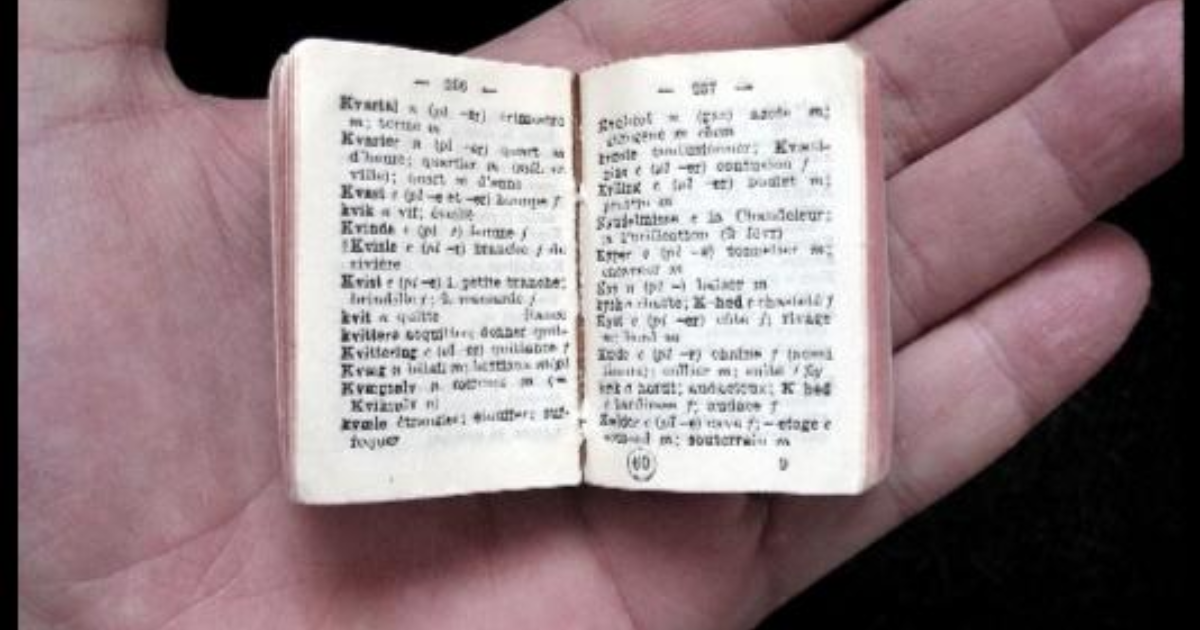 — 256 —
Kvartal n (pl -er) trimestre
m; terme m
Kvarter n (pl -er) quart m
d'heure; quartier m
ville); quart m d'aune
Kvast c (pl -e et -er) houppe f
kvik a vif; éveillé
Kvinde c (pl -r) femme f
Kvisle c (pl -r) branche f de
rivière
Kvist c (pl -e) 1. petite branche;
brindille f; 2. mansarde f
kvit a quitte
kvittere acquitter; donner quit-
Kvittering c (pl -er) quittance f
Kvæg n bétail m; bestiaux mpl
Kvægsølv n mercure m (=
Kviksølv n)
kvæle étrangler; étouffer; suf-
foquer
— 257 —
m (gas) azote m;
m chim
contusionner;
c (pl -er) contusion f
Kylling c (pl -er) poulet m;
m
Kyndelmisse c la Chandeleur;
la Purification (2 févr)
c (pl -e) tonnelier m;
m
Kys n (pl -) baiser m
kysk a chaste; K-hed c chasteté f
Kyst c (pl -er) côte f; rivage
m; bord m
c (pl -r) chaîne f
collier m; suite f fig
a hardi; audacieux; K-hed
c hardiesse f; audace f
Kælder c (pl -e) cave f; -etage c
m; souterrain m
60 9